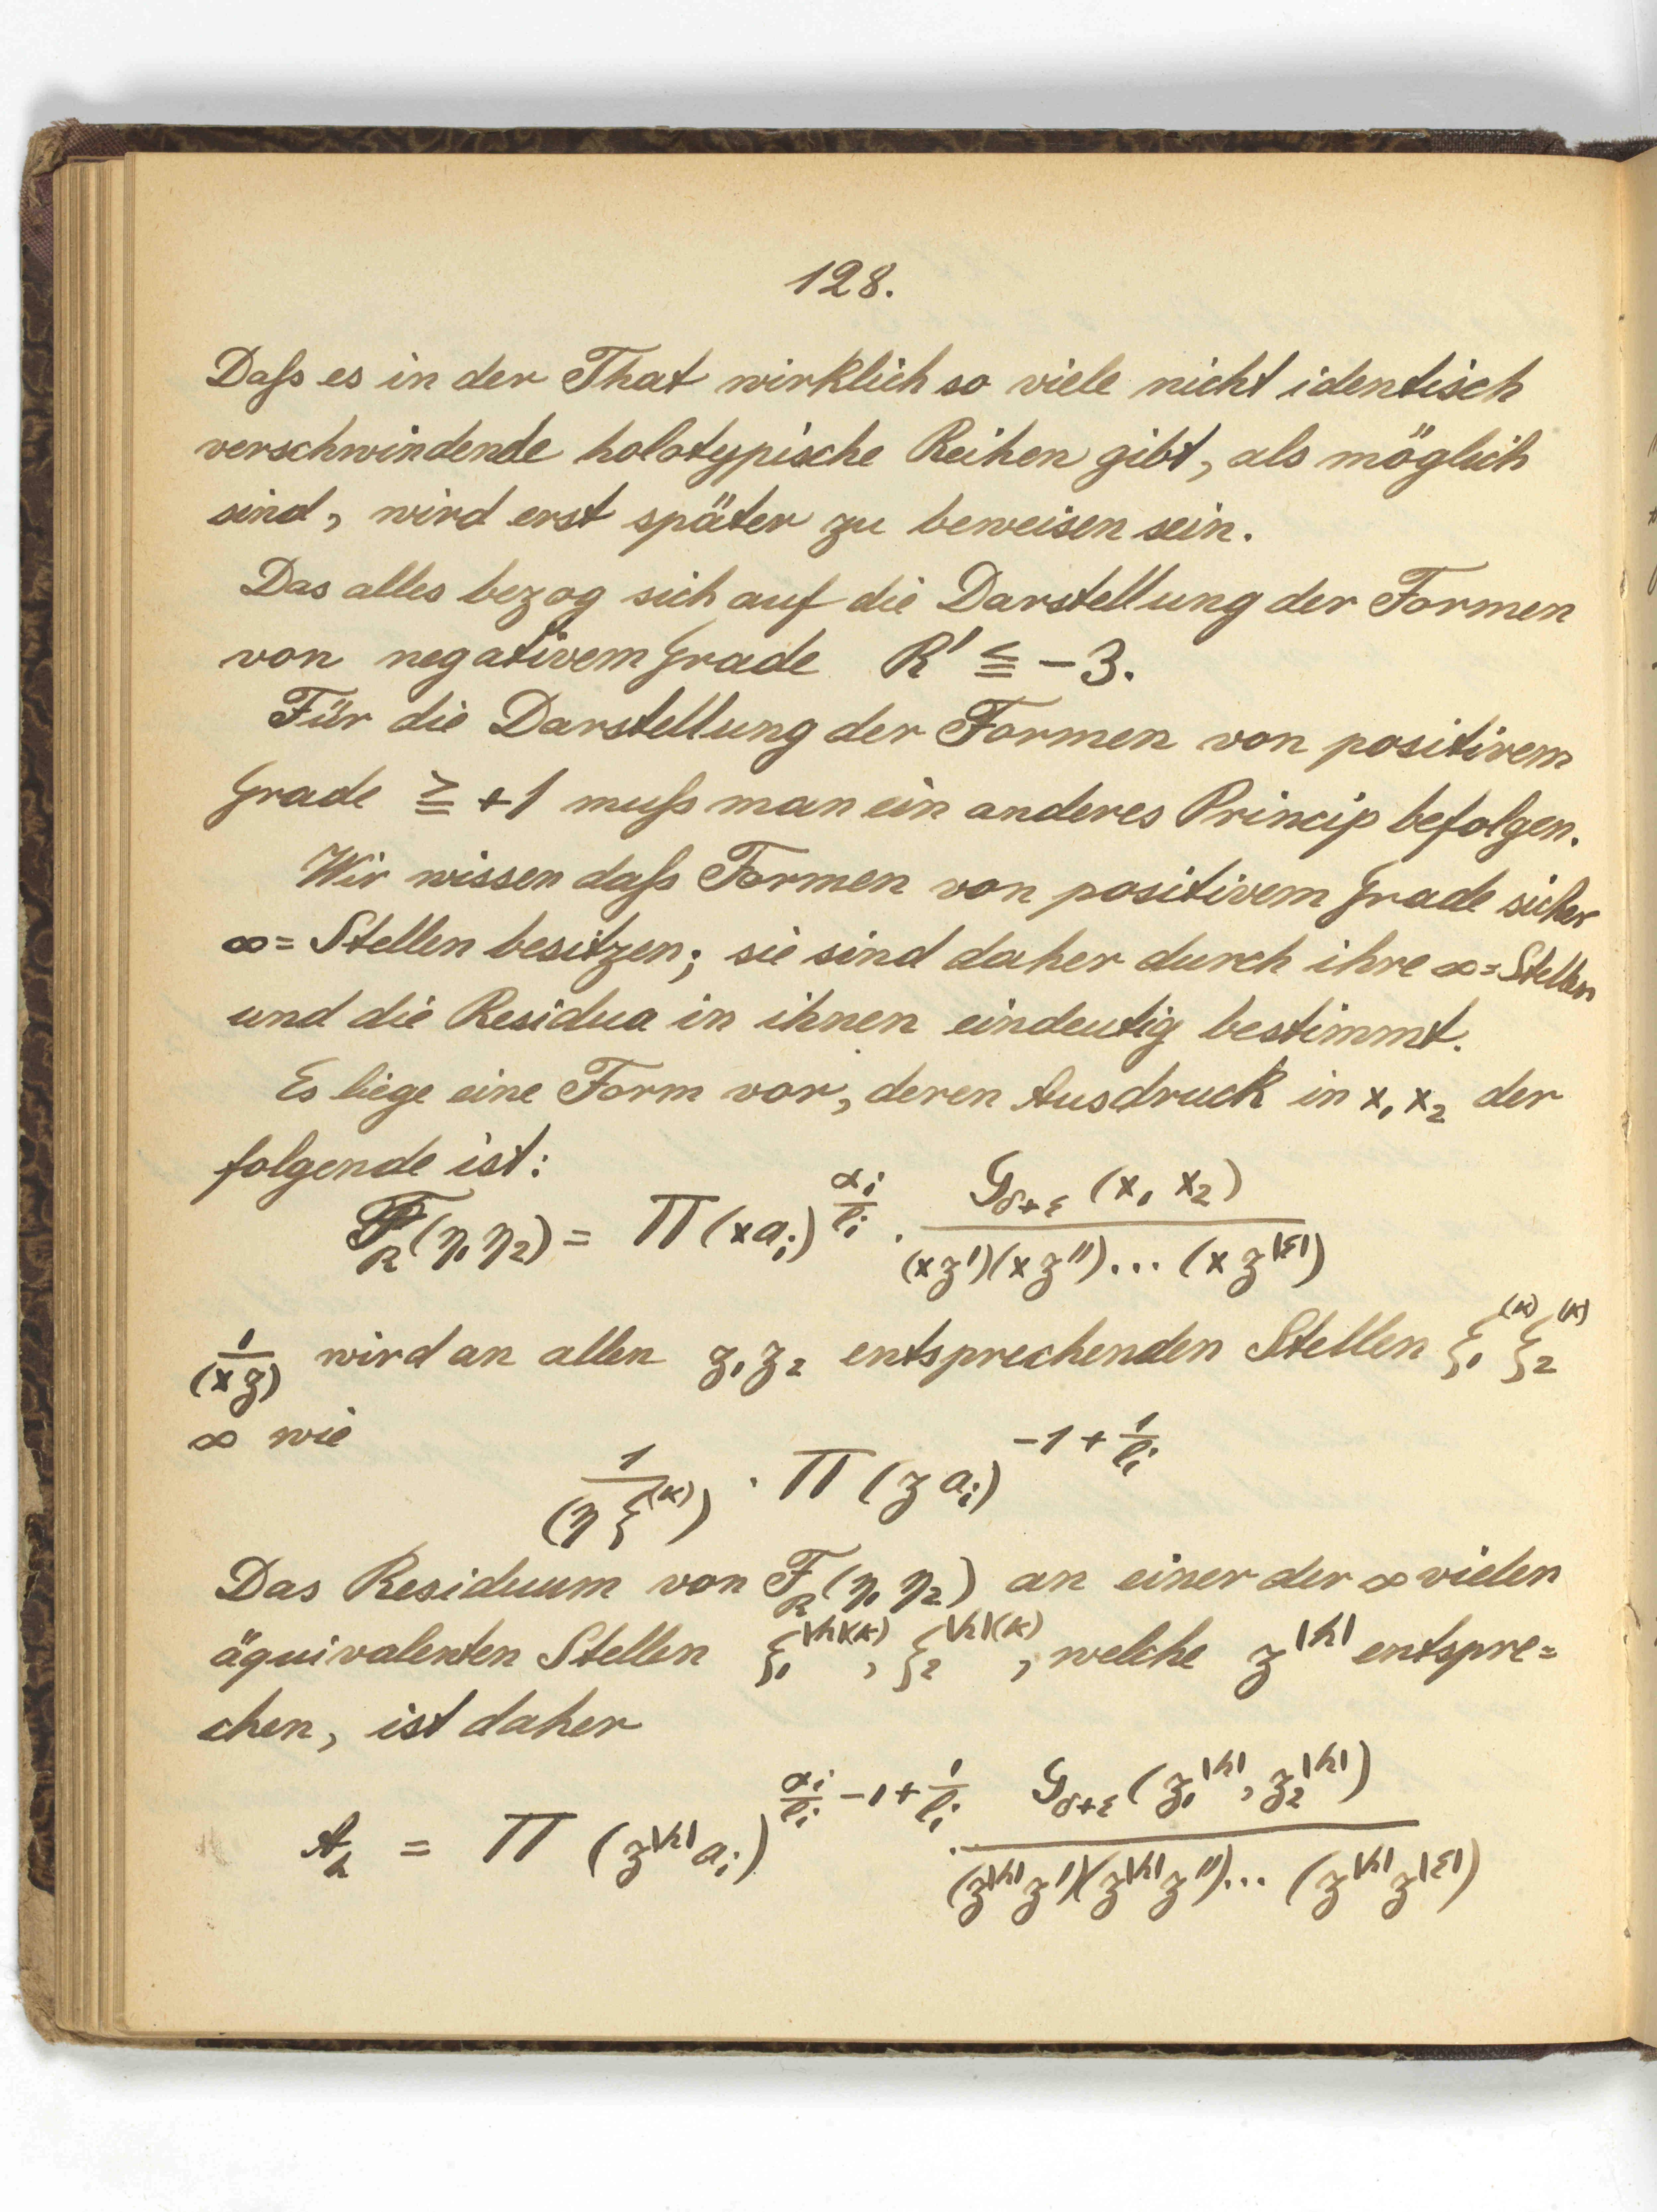 128.
Daſs es in der That wirklich so viele nicht identisch
verschwindende holotypische Reihen gibt, als möglich
sind, wird erst später zu beweisen sein.
Das alles bezog sich auf die Darstellung der Formen
von negativem Grade R' ≦ −3.
Für die Darstellung der Formen von positivem
Grade ≧ +1 muſs man ein anderes Princip befolgen.
Wir wissen daſs Formen von positivem Grade sicher
∞= Stellen besitzen; sie sind daher durch ihre ∞=Stellen
und die Residua in ihnen eindeutig bestimmt.
Es liege eine Form vor, deren Ausdruck in x₁ x₂ der
folgende ist:
F_R(η₁ η₂) = Π(x a_i)^{α_i/l_i} · G_{δ+ε}(x₁ x₂) / (x z')(x z'')... (x z^{|ε|})
1/(x z) wird an allen z₁ z₂ entsprechenden Stellen ξ₁^{(κ)} ξ₂^{(κ)}
∞ wie
1/(η ξ^{(κ)}) · Π(z a_i)^{−1 + 1/l_i}
Das Residuum von F_R(η₁ η₂) an einer der ∞ vielen
äquivalenten Stellen ξ₁^{|h|(κ)}, ξ₂^{|h|(κ)}, welche z^{|h|} entspre=
chen, ist daher
A_h = Π (z^{|h|} a_i)^{α_i/l_i − 1 + 1/l_i} · G_{δ+ε}(z₁^{|h|}, z₂^{|h|}) / (z^{|h|} z')(z^{|h|} z'')... (z^{|h|} z^{|ε|})